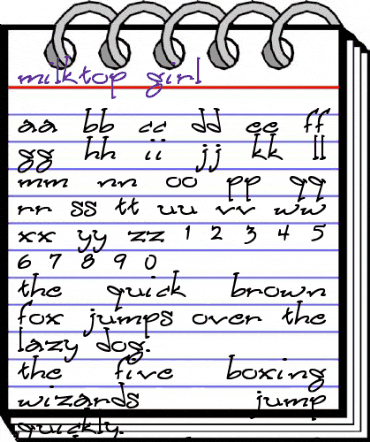 milktop girl
aa bb cc dd ee ff
gg hh ii jj kk ll
mm nn oo pp qq
rr ss tt uu vv ww
xx yy zz 1 2 3 4 5
6 7 8 9 0
the quick brown
fox jumps over the
lazy dog.
the five boxing
wizards jump
quickly.